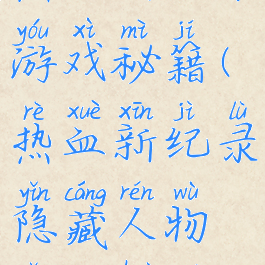 yóu xì mì jí
游戏秘籍(
rè xuè xīn jì lù
热血新纪录
yǐn cáng rén wù
隐藏人物